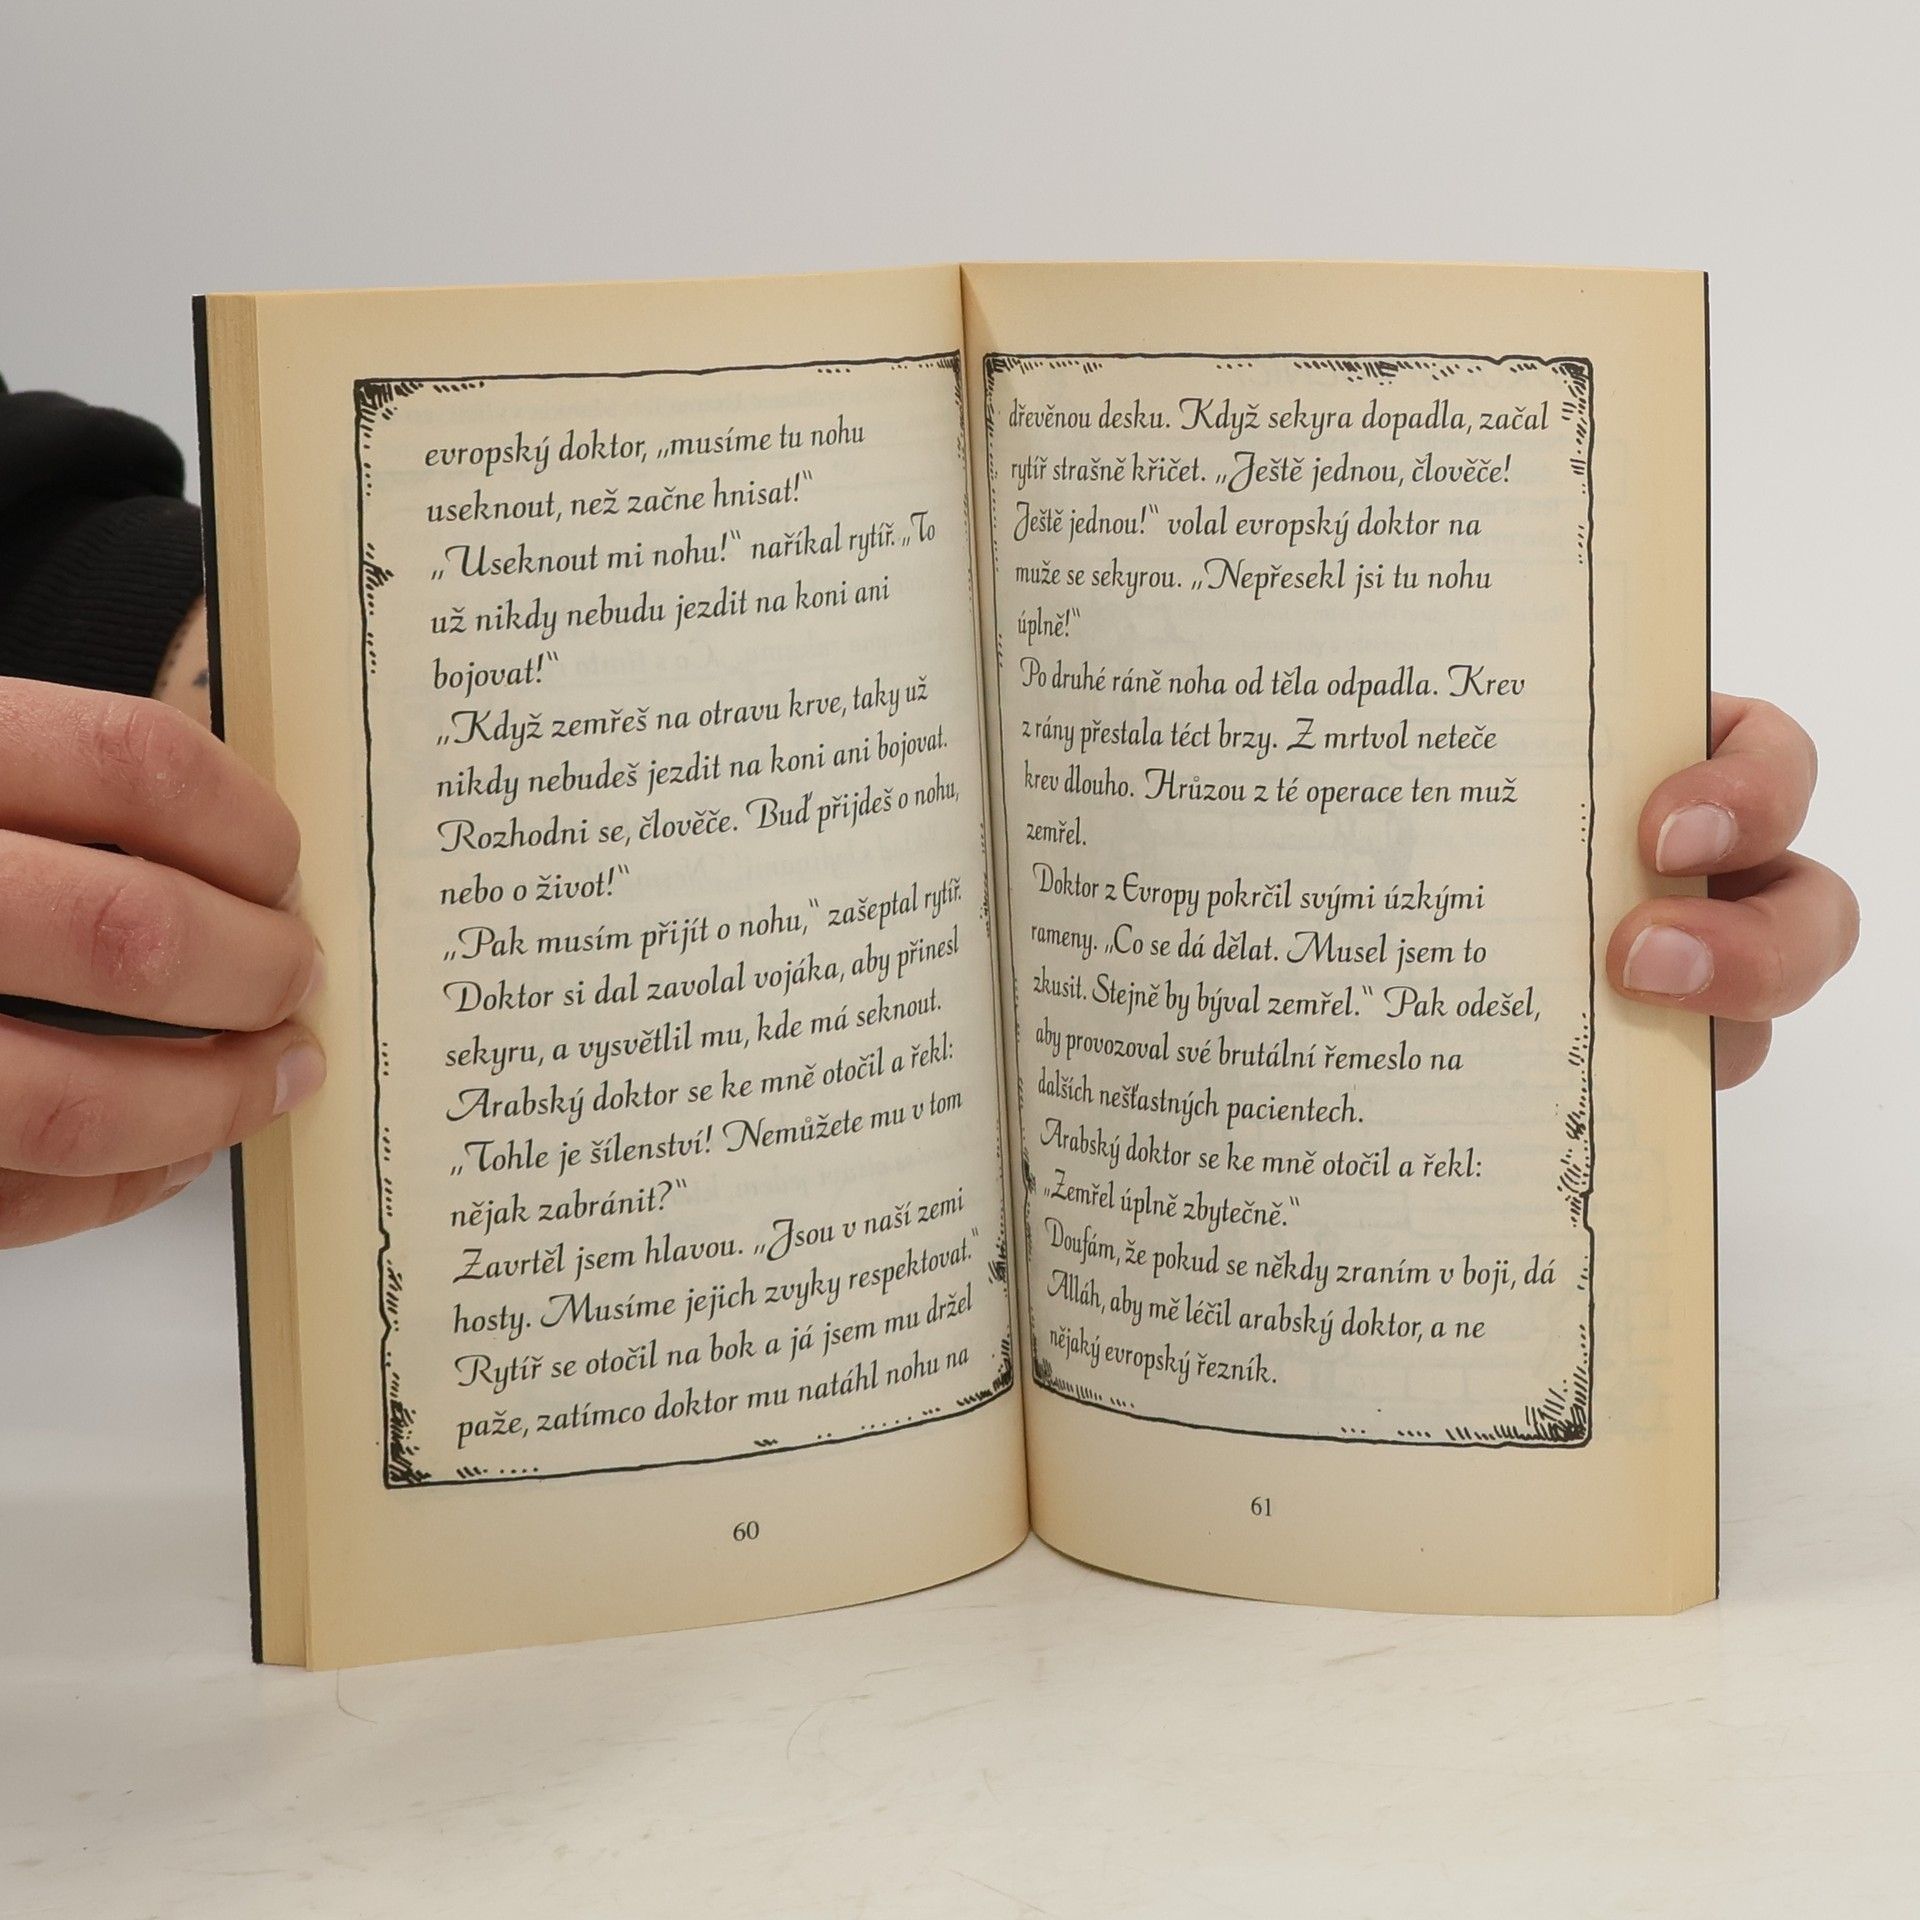 evropský doktor, „musíme tu nohu
useknout, než začne hnisat!“
„Useknout mi nohu!“ naříkal rytíř. „To
už nikdy nebudu jezdit na koni ani
bojovat!“
„Když zemřeš na otravu krve, taky už
nikdy nebudeš jezdit na koni ani bojovat.
Rozhodni se, člověče. Buď přijdeš o nohu,
nebo o život!“
„Pak musím přijít o nohu,“ zašeptal rytíř.
Doktor si dal zavolal vojáka, aby přinesl
sekyru, a vysvětlil mu, kde má seknout.
Arabský doktor se ke mně otočil a řekl:
„Tohle je šílenství! Nemůžete mu v tom
nějak zabránit?“
Zavrtěl jsem hlavou. „Jsou v naší zemi
hosty. Musíme jejich zvyky respektovat.“
Rytíř se otočil na bok a já jsem mu držel
paže, zatímco doktor mu natáhl nohu na
60
dřevěnou desku. Když sekyra dopadla, začal
rytíř strašně křičet. „Ještě jednou, člověče!
Ještě jednou!“ volal evropský doktor na
muže se sekyrou. „Nepřesekl jsi tu nohu
úplně!“
Po druhé ráně noha od těla odpadla. Krev
z rány přestala téct brzy. Z mrtvol neteče
krev dlouho. Hrůzou z té operace ten muž
zemřel.
Doktor z Evropy pokrčil svými úzkými
rameny. „Co se dá dělat. Musel jsem to
zkusit. Stejně by býval zemřel.“ Pak odešel,
aby provozoval své brutální řemeslo na
dalších nešťastných pacientech.
Arabský doktor se ke mně otočil a řekl:
„Zemřel úplně zbytečně.“
Doufám, že pokud se někdy zraním v boji, dá
Alláh, aby mě léčil arabský doktor, a ne
nějaký evropský řezník.
61